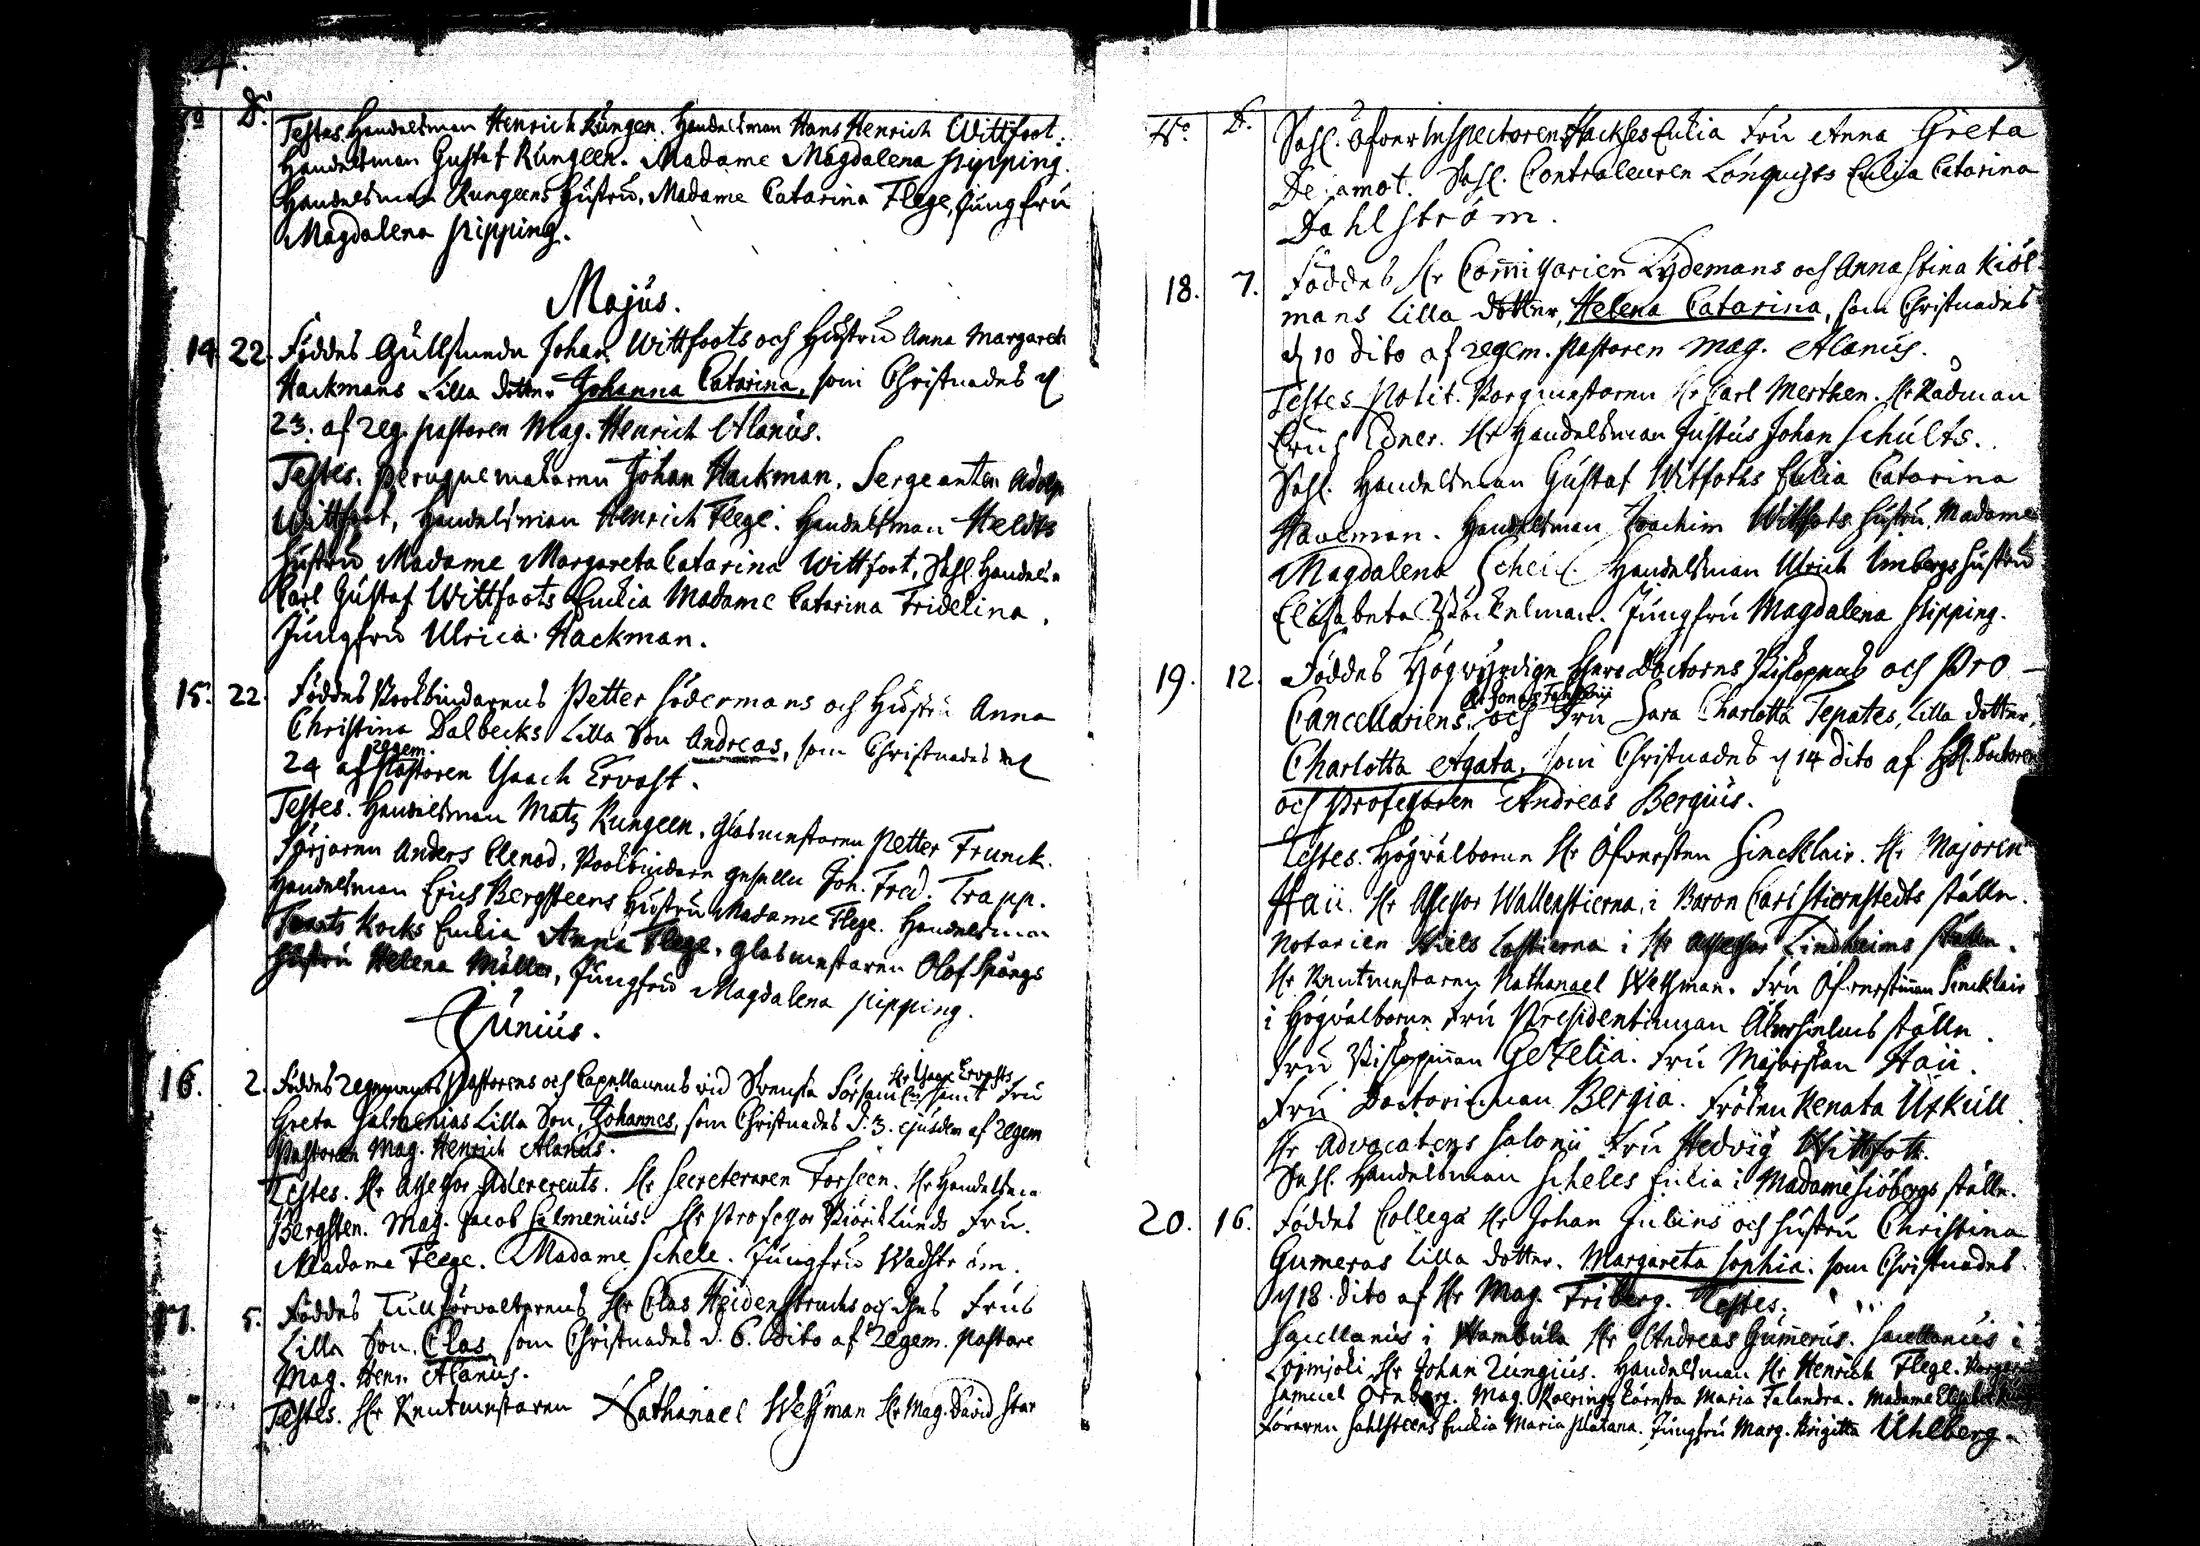 4.
No D.
Testes. Handelsman Henrich Rungen. Handelsman Hans Henrich Wittfoot.
Handelsman Gustaf Rungeen. Madame Magdalena Pipping.
Handelsman Rungeens Hustru, Madame Catarina Flege, Jungfru
Magdalena Pipping.
Majus.
14. 22. Föddes Gullsmeden Johan Wittfoots och Hustru Anna Margareta
Hackmans Lilla dotter Johanna Catarina, som Christnades d
23. af reg. pastoren Mag. Henrich Alanus.
Testes. Peruquemakaren Johan Hackman. Sergeanten Adolph
Wittfoot, Handelsman Henrich Flege. Handelsman Heldts
Hustru Madame Margareta Catarina Wittfoot, Sahl. Handelsm
Carl Gustaf Wittfoots Enkia Madame Catarina Fridelina.
Jungfru Ulrica Hackman.
15. 22. Föddes Bookbindarens Petter Södermans och Hustru Anna
Christina Dalbecks Lilla Son Andreas, som Christnades d
24 af regem. Pastoren Isaach Ervast.
Testes. Handelsman Matz Rungeen. Glasmestaren Petter Trunck.
Färjaren Anders Clenod. Bookbindare gesellen Joh. Fred. Trapp.
Handelsman Erics Bergsteens Hustru Madame Flege. Handelsman
Kocks Enkia Anna Flege. Glasmestaren Olof Spångs
Hustru Helena Möller, Jungfru Magdalena Pipping.
Junius.
16. 2. Föddes Regements Pastorens och Capellanens vid Svenska Församl. Hr Isaac Ervasts samt Fru
Greta Salmenias Lilla Son, Johannes, som Christnades d. 3. ejusdem af Regem
Pastoren Mag. Henrich Alanus.
Testes. Hr Assessor Adlercreuts. Hr Secreteraren Forseen. Hr Handelsman
Bergsten. Mag. Jacob Salmenius. Hr Professor Biörklunds Fru.
Madame Flege. Madame Schele. Jungfru Wadström.
17. 5. Föddes Tullförvaltarens Hr Clas Heidenstrauchs och dess Frus
Lilla Son, Clas som Christnades d. 6. dito af Regem. Pastore
Mag. Henr. Alanus.
Testes. Hr Rentmestaren Nathanael Wessman Hr Mag. David Star
No D.
Sahl. Öfver Inspectoren Hackses Enkia Fru Anna Greta
Sahl. Contraleuren Lönquists Enkia Catarina
Dahlström.
18. 7. Föddes Hr Commissarien Lydemans och Anna Stina Kiöl
mans Lilla dotter, Helena Catarina, som Christnades
d 10 dito af regem. pastoren Mag. Alanus.
Testes Polit. Borgmestaren Hr Carl Merthen. Hr Rådman
Hr Handelsman Justus Johan Schults.
Sahl. Handelsman Gustaf Witfoths Enkia Catarina
Haveman. Handelsman Joachim Wittfots Hustru, Madame
Magdalena Handelsman Ulrich Imbergs Hustru
Elisabeta Böckelman. Jungfru Magdalena Pipping.
19. 12. Föddes Högvyrdige Herr Doctorns Biskopens och Pro-
Cancellariens Hr Jonas Fahlenii och Fru Sara Charlotta Tepates, Lilla dotter,
Charlotta Agata, som Christnades d 14 dito af Hr Doctoren
och Professoren Andreas Bergius.
Testes. Högvälborne Hr Öfversten Sincklair. Hr Majoren
Haii. Hr Assessor Wallenstierna, i Baron Carl Stiernstedts ställe.
Notarien Niels Lostierna i Hr Assessor Lindheims ställe.
Hr Rentmestaren Nathanael Wessman. Fru Öfverstinnan Sincklair
i Högvälborne Fru Presidentinnan Åkerhielms ställe.
Fru Biskopinnan Gezelia. Fru Majorskan Haii.
Fru Doctorinnan Bergia. Fröken Renata Üxkull
Hr Advocatens Salonii Fru Hedvig Wittfoth.
Sahl. Handelsman Scheles Enkia i Madame Siöbergs ställe.
20. 16. Föddes Collegæ Hr Johan Julins och Hustru Christina
Gumeras Lilla dotter. Margareta Sophia. som Christnades
d 18. dito af Hr Mag. Friberg. Testes.
Sacellanus i Wambula Hr Andreas Gumerus. Sacellanus i
Loimjoki Hr Johan Rungius. Handelsman Hr Henrich Flege.
Samuel Örnberg. Mag. Kærsta Maria Falandra. Madame
Sahlsteens Enkia Maria Platana. Jungfru Marg. Brigitta Uhlberg.